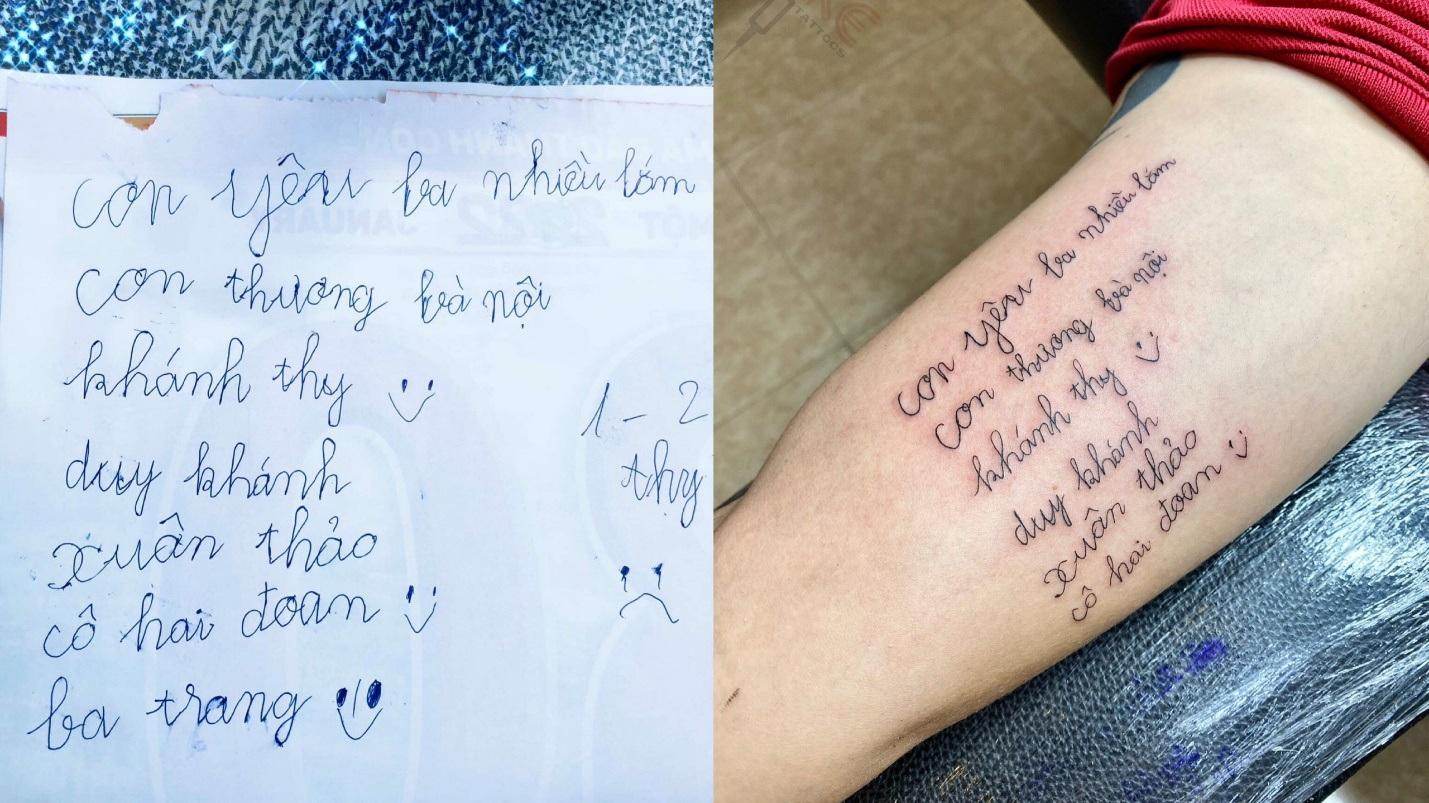 con yêu ba nhiều lắm
con thương bà nội
khánh thy
duy khánh
xuân thảo
cô hai đoan
ba trang
1 - 2
thy
TATTOOS
con yêu ba nhiều lắm
con thương bà nội
khánh thy
duy khánh
xuân thảo
cô hai đoan